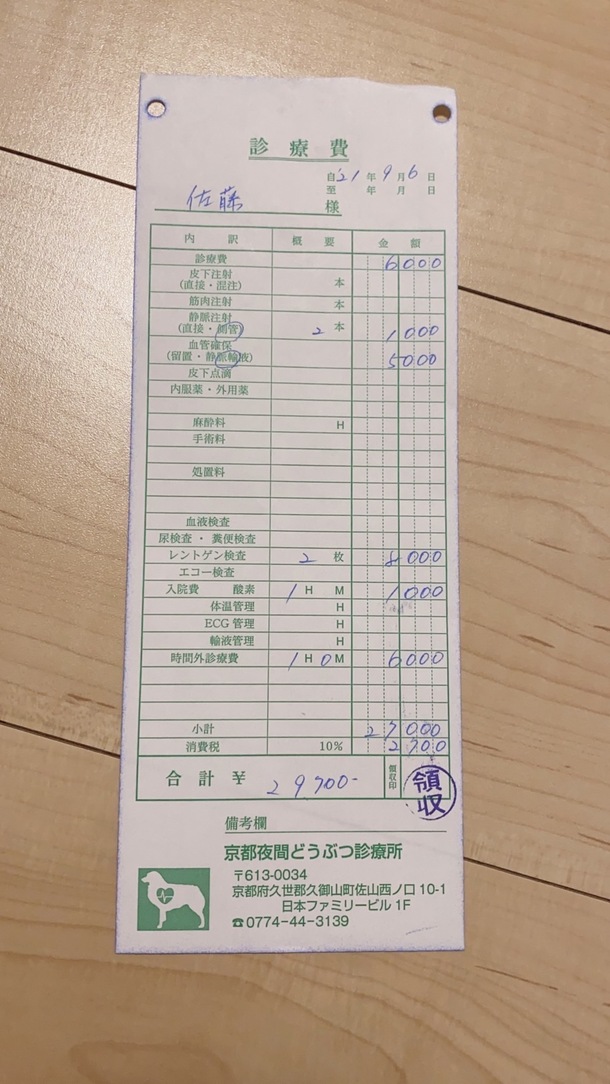 診療費
自'21年9月6日
至 年 月 日
佐藤 様
内訳 概要 金額
診療費 6000
皮下注射
(直接・混注) 本
筋肉注射 本
静脈注射
(直接・側管) 2本 1000
血管確保
(留置・静脈輸液) 5000
皮下点滴
内服薬・外用薬
麻酔料 H
手術料
処置料
血液検査
尿検査・糞便検査
レントゲン検査 2枚 8000
エコー検査
入院費 酸素 1H M 1000
体温管理 H
ECG管理 H
輸液管理 H
時間外診療費 1H0M 6000
小計 27000
消費税 10% 2700
合計 ¥ 29700- 領収印 領収
備考欄
京都夜間どうぶつ診療所
〒613-0034
京都府久世郡久御山町佐山西ノ口10-1
日本ファミリービル1F
☎0774-44-3139